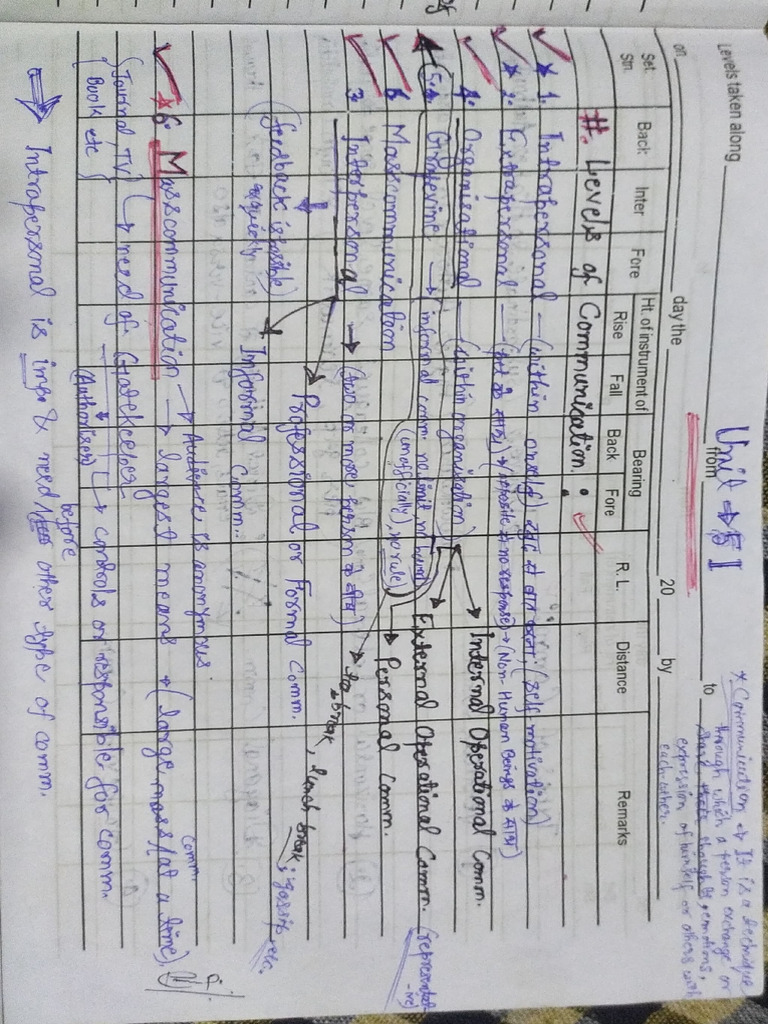 Levels taken along
on day the 20 by
from to
Unit → I
* Communication → It is a technique
through which a person exchange or
expression of himself or others with
each other.
Set. Stn. Back Inter Fore Ht. of instrument of Rise Fall Bearing Back Fore R. L. Distance Remarks
#. Levels of Communication :
* 1. Intrapersonal — (within oneself) (self motivation)
* 2. Extrapersonal — (opposite → no response) → (Non-Human Beings से
4. Organisational — (within organisation) → Internal Operational Comm.
→ External Operational Comm. (representative)
→ Personal Comm.
5. Grapevine → (informal comm. no limit,
(unofficially), no rule)
6 Masscommunication
3. Interpersonal → (two or more person → tea break, lunch break, gossip etc.
Professional or Formal Comm.
(feedback is possible quickly)
Informal Comm.
→ Audience is anonymous.
* 6. Masscommunication → largest means → (large mass comm. (at a time)
(Journal, TV
Book etc) → need of Gatekeeper → controls or responsible for comm.
(Authoriser)
⇒ Intrapersonal is imp. & need before other type of comm.